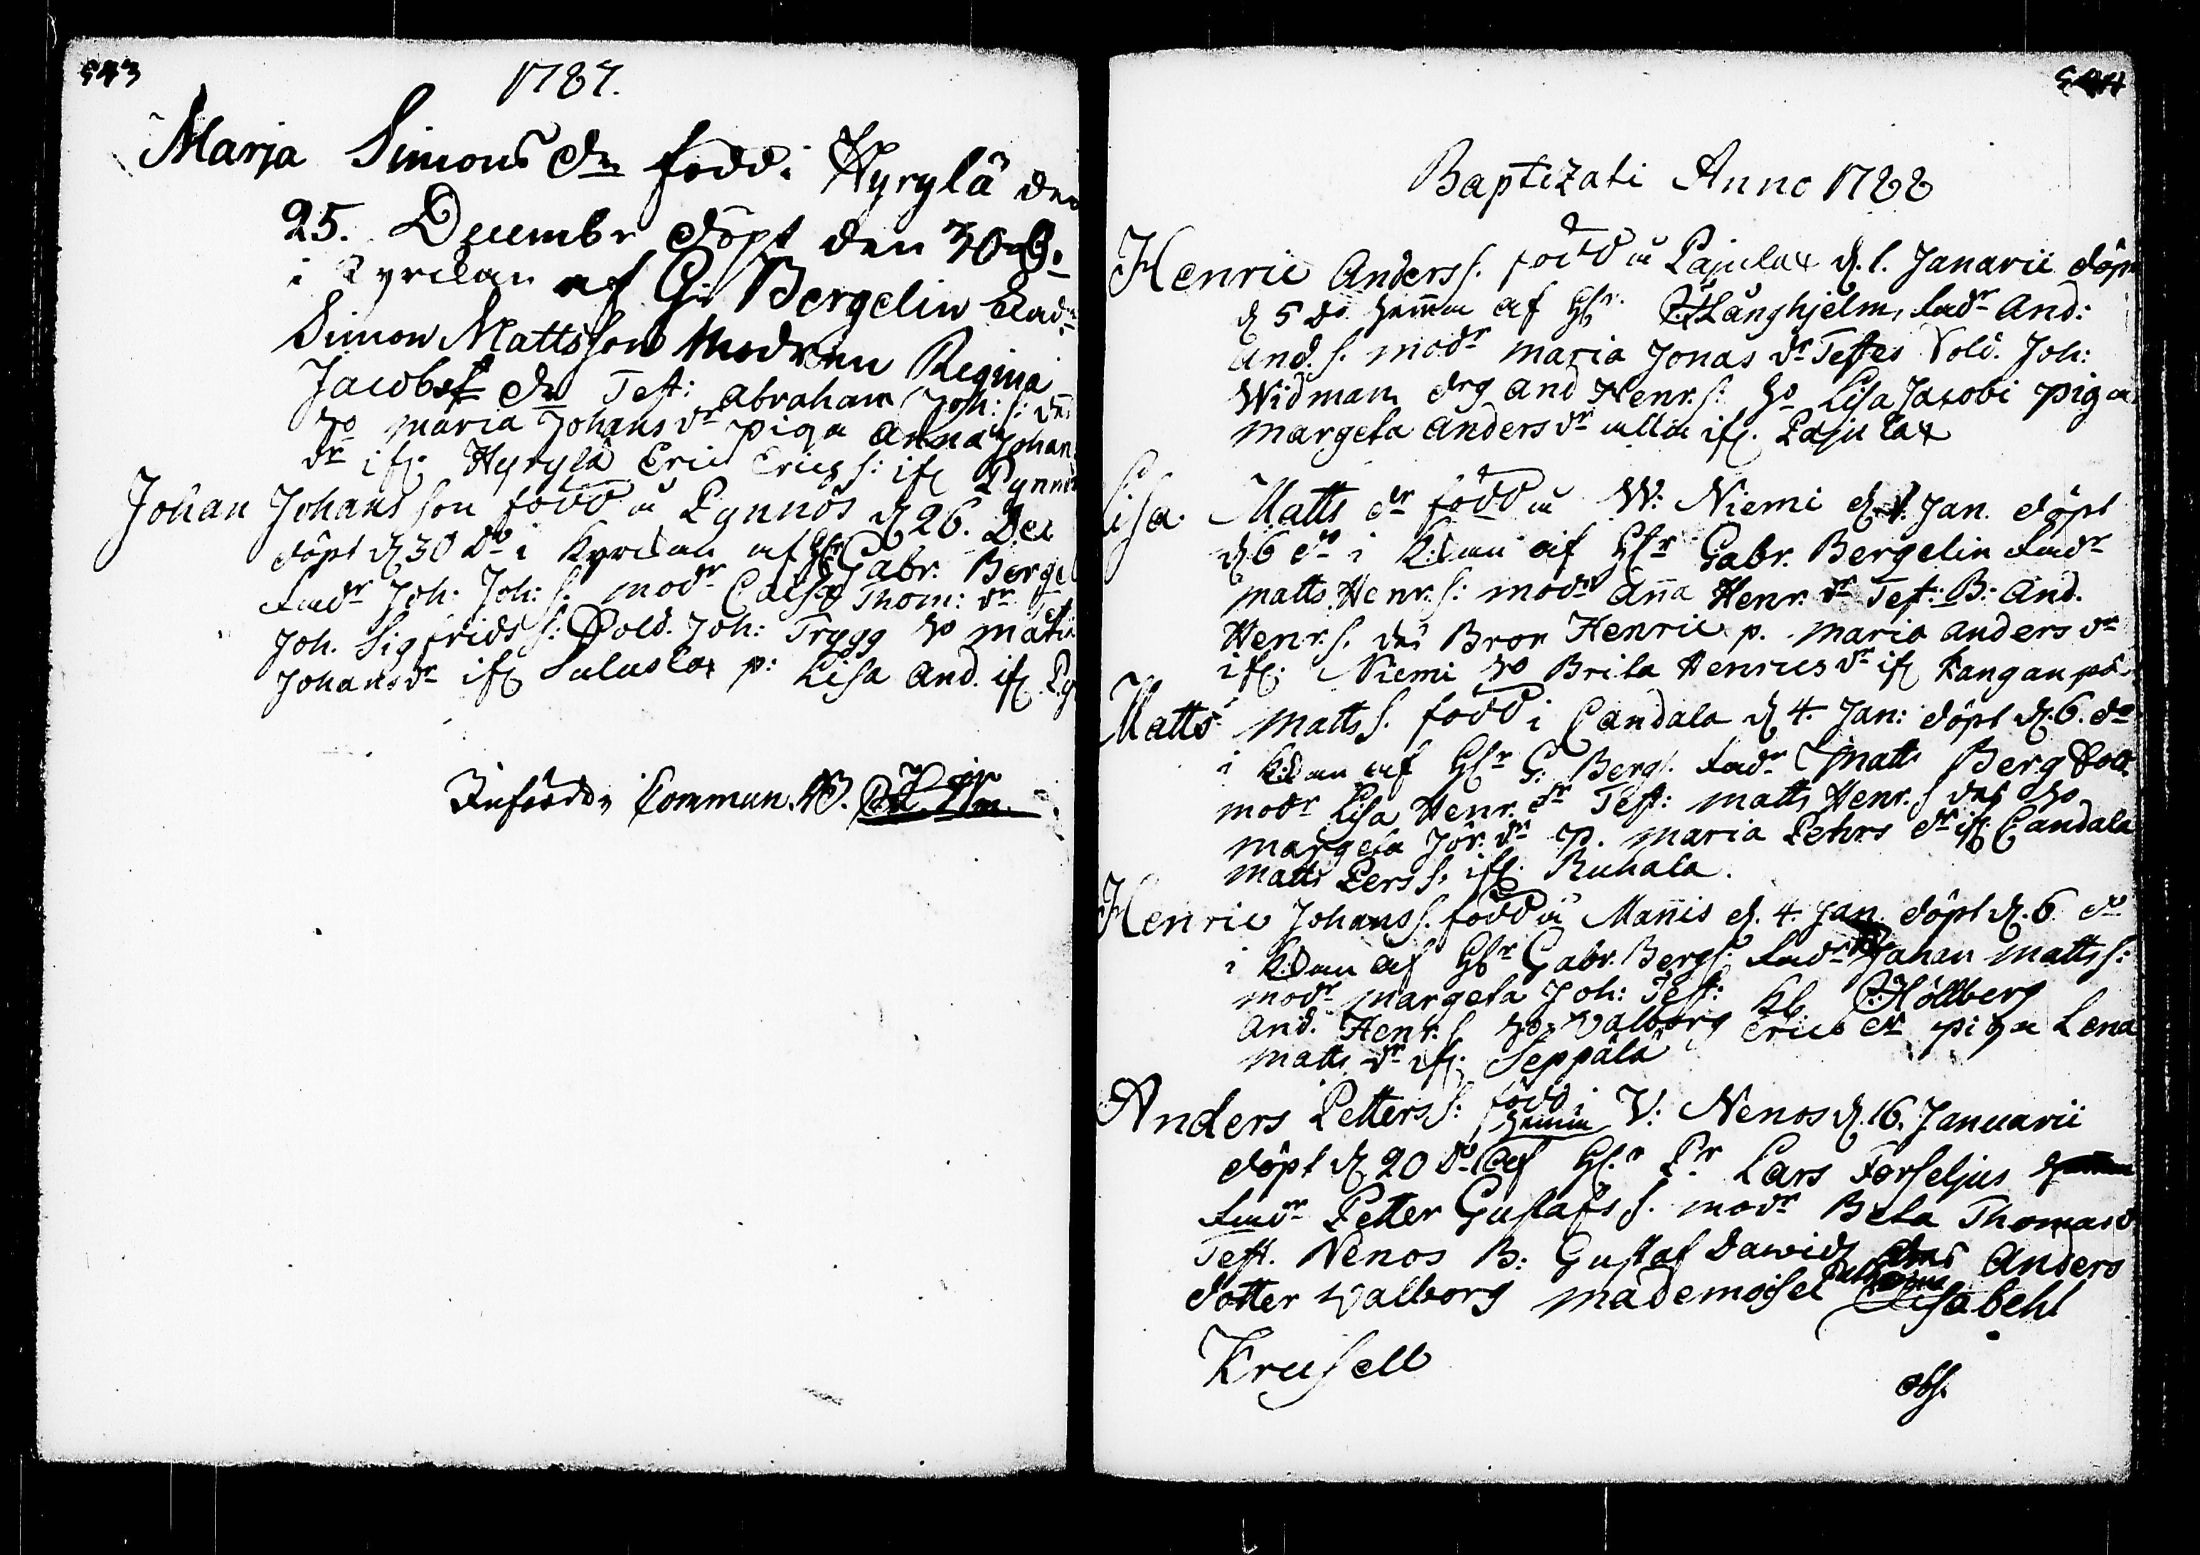 543
1787.
Marja Simons dr född i Hyrylä den
25. Decembr döpt den 30 do
i Kyrckan af G: Bergelin Fadr
Simon Mattsson Modren Regina
Jacobs dr Test: Abraham Joh: s: des
ho Maria Johans dr piga Anna Johan
dr ifr Hyrylä Eric Erics s: ifr Pynnö
Johan Johansson född i Pynnös d 26. Dec
döpt d 30 do i Kyrckan af Hr Gabr. Berge
Fadr Joh. Joh: s. modr Caisa Thom: dr Test
Joh. Sigfrids s: Sold. Joh: Trygg ho
Johans dr ifr Suluslax p: Lisa And. ifr Py
Införde i Commun. B.
544
Baptizati Anno 1788
Henric Anders s. född i Pajulax d. 1. Janarii döpt
d 5 do hemma af Hr Långhjelm, Fadr And:
And. s. modr Maria Jonas dr Testes Sold. Joh:
Widman drg And Henr. s: ho Lisa Jacobi piga
Margeta Anders dr alla ifr. Pajulax
Lisa Matts dr född i W: Niemi d 1. Jan. döpt
d 6 do i K:kan af Hr Gabr. Bergelin Fadr
Matts Henr. s: modr Anna Henr. dr Test: B: And.
Henr. s. des Bror Henric p. Maria Anders dr
ifr. Niemi ho Brita Henrics dr ifr Kanganpä
Matts Matts s. född i Candala d 4. Jan: döpt d. 6. do
i K:kan af Hr G: Berg. Fadr Matts Berg Sold
modr Lisa Henr. dr Test: Matts Henr. s des ho
Margeta Jör. dr p. Maria Pehrs dr ifr. Candala
Matts Pers s. ifr. Ruhala.
Henric Johans s. född i Mannis d. 4. Jan. döpt d. 6 do
i K:kan af Hr Gabr. Berg. Fadr Johan Matts s:
modr Margeta Joh: Test: Kl. Höllberg
And. Henr. s ho Valborg Erics dr piga Lena
Matts dr ifr. Seppälä
Anders Petters s: född i V. Nenos d. 16. Januarii
hemma
döpt d 20 do af Hr Pr Lars Forseljus
Fadr Petter Gustafs s. modr Beta Thomas d
Test. Nenos B: Gustaf Dawids des Anders
dotter Walborg Mademoisel Elisabeht
Krusell
obs.